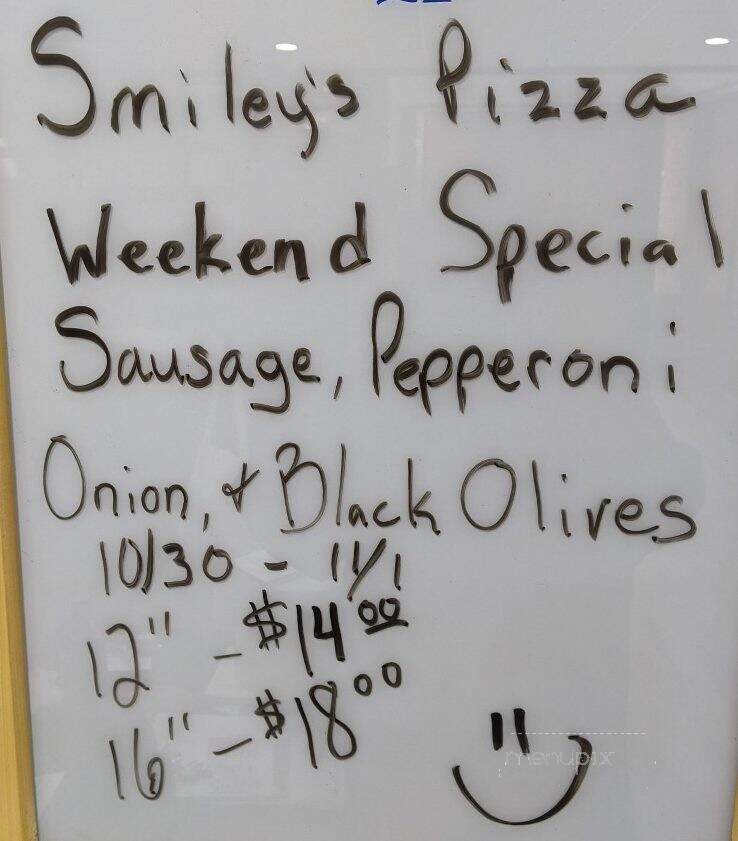 Smiley's Pizza
Weekend Special
Sausage, Pepperoni
Onion, & Black Olives
10/30 - 11/1
12" - $14.00
16" - $18.00
menupix